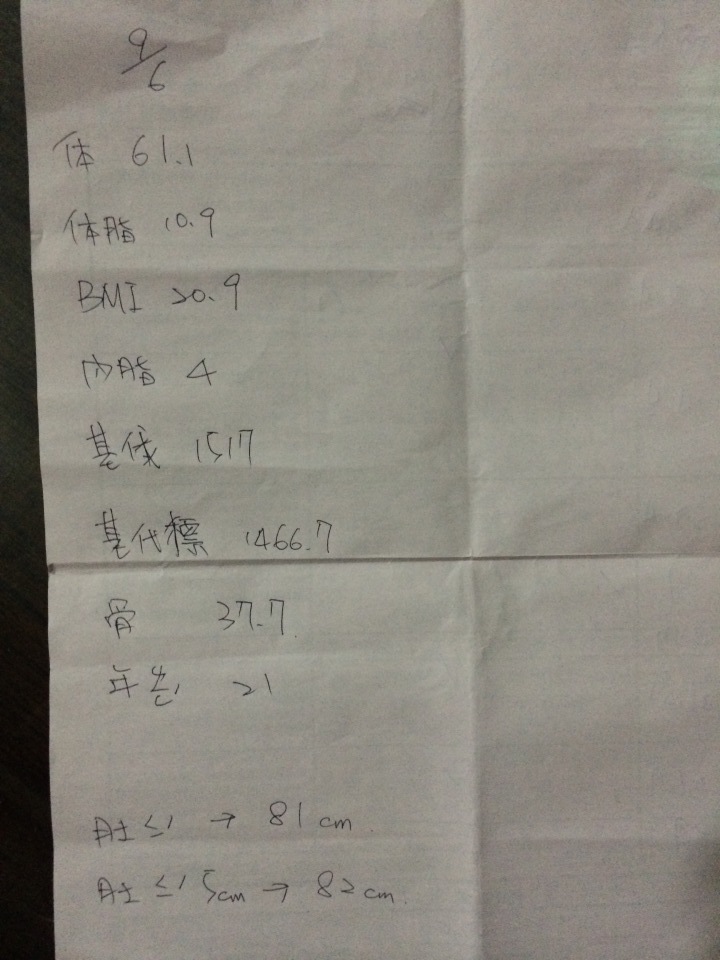 9/6
体 61.1
体脂 10.9
BMI 20.9
內脂 4
基代 1517
基代標 1466.7
骨 37.7
年 21
肚 → 81cm
肚 5cm → 82cm